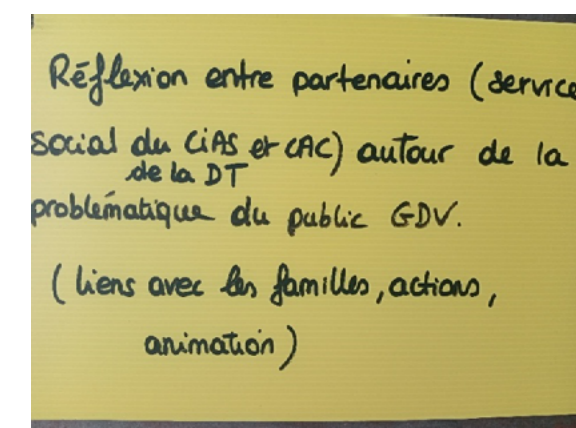 Réflexion entre partenaires (service
social du CiAS et CAC) autour de la
de la DT
problématique du public GDV.
(liens avec les familles, actions,
animation)